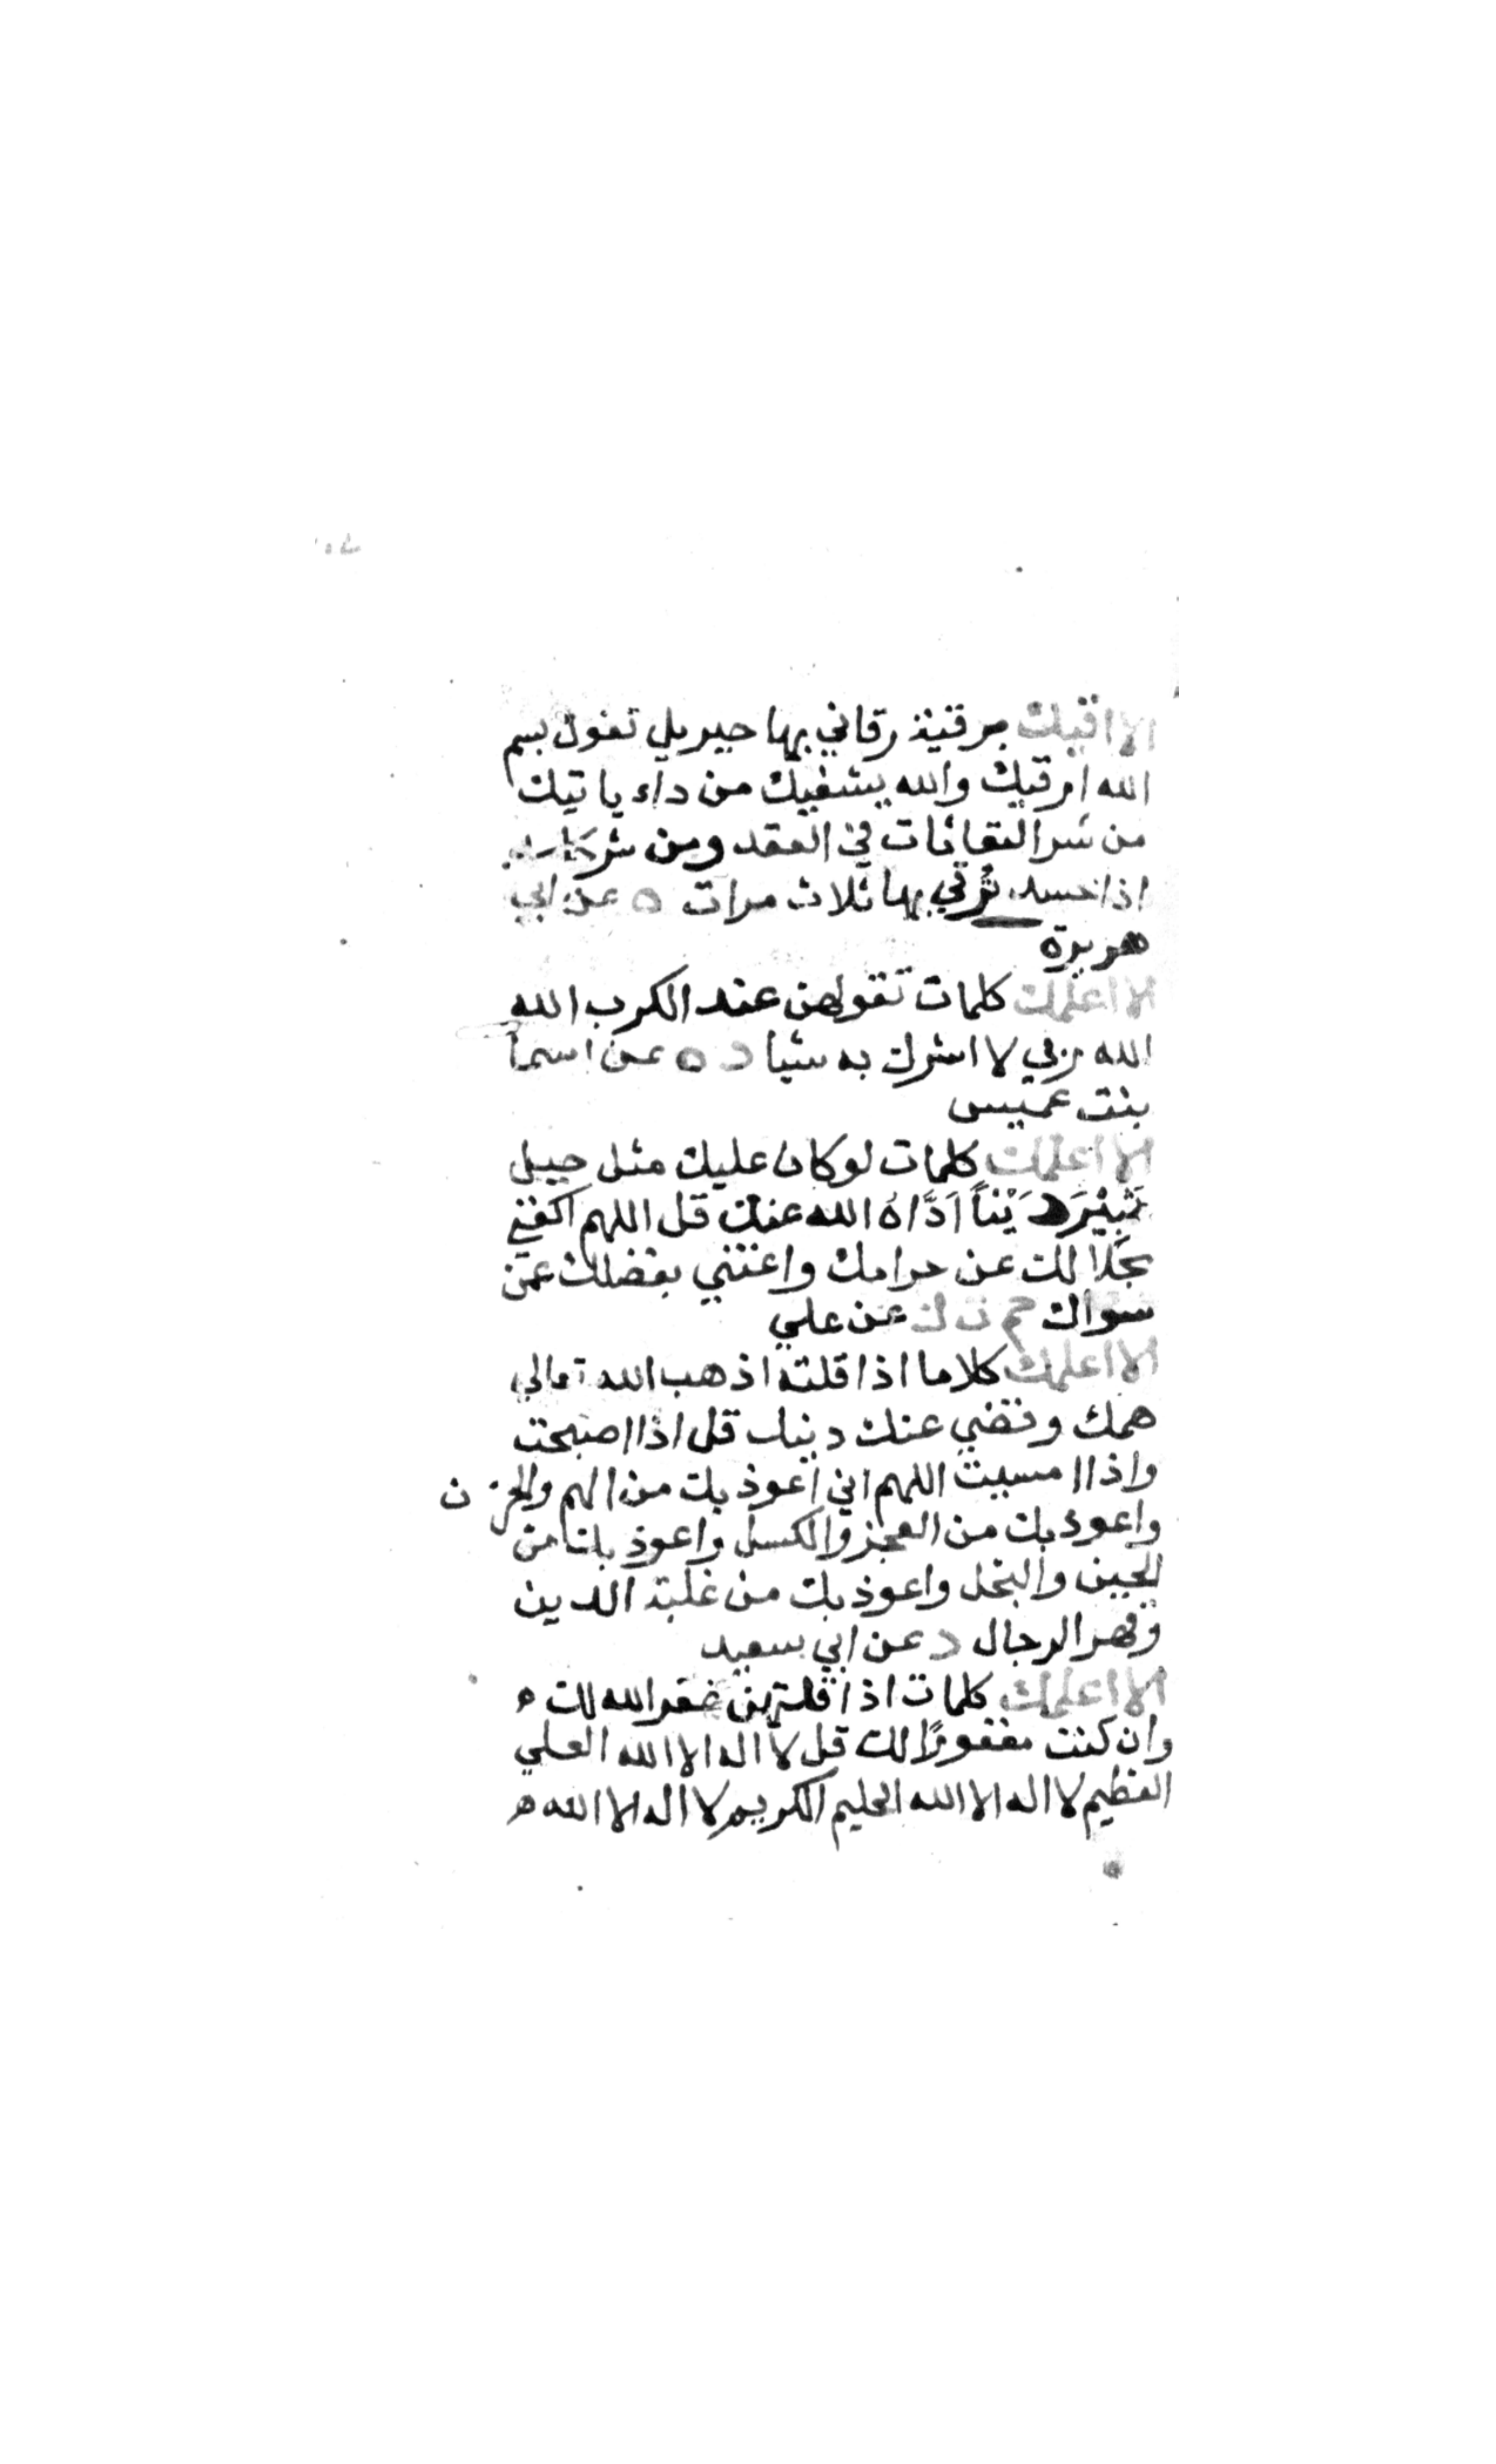 الا اقيك برقية رقاني بها جبريل تقول بسم
الله ارقيك والله يشفيك من داء ياتيك
من شر النفاثات في العقد ومن شر حاسد
اذا حسد ترقي بها ثلاث مرات ه عن ابي
هريرة
الا اعلمك كلمات تقولهن عند الكرب الله
الله ربي لا اشرك به شيا د ه عن اسما
بنت عميس
الا اعلمك كلمات لو كان عليك مثل جبل
ثَبِيْرَ دَيْناً اَدَّاهُ الله عنك قل اللهم اكفني
بحلالك عن حرامك واغنني بفضلك عمن
سواك حم ت ك عن علي
الا اعلمك كلاما اذا قلته اذهب الله تعالى
همك وقضي عنك دينك قل اذا اصبحت
واذا امسيت اللهم اني اعوذ بك من الهم والحزن
واعوذ بك من العجز والكسل واعوذ بك من
الجبن والبخل واعوذ بك من غلبة الدين
وقهر الرجال د عن ابي سعيد
الا اعلمك كلمات اذا قلتهن غفر الله لك ه
وان كنت مغفورًا لك قل لا اله الا الله العلي
العظيم لا اله الا الله الحليم الكريم لا اله الا الله ه